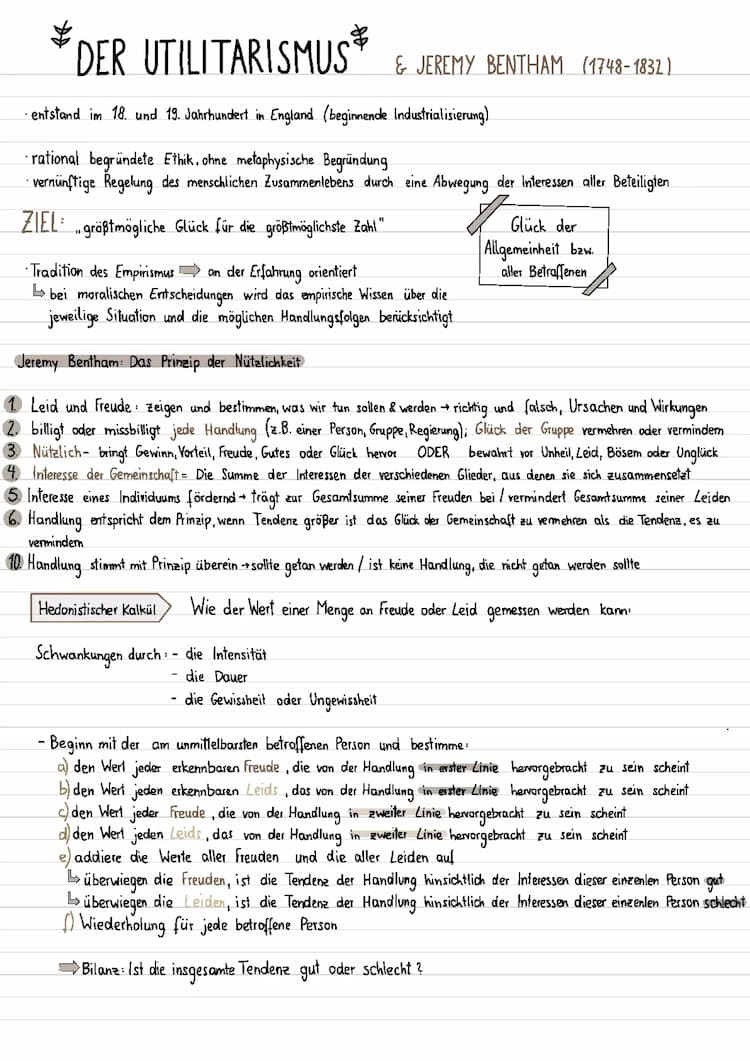 DER UTILITARISMUS & JEREMY BENTHAM (1748-1832)
· entstand im 18. und 19. Jahrhundert in England (beginnende Industrialisierung)
· rational begründete Ethik, ohne metaphysische Begründung
· vernünftige Regelung des menschlichen Zusammenlebens durch eine Abwegung der Interessen aller Beteiligten
ZIEL: „größtmögliche Glück für die größtmöglichste Zahl"
Glück der
Allgemeinheit bzw.
aller Betroffenen
· Tradition des Empirismus ⇒ an der Erfahrung orientiert
↳ bei moralischen Entscheidungen wird das empirische Wissen über die
jeweilige Situation und die möglichen Handlungsfolgen berücksichtigt
Jeremy Bentham: Das Prinzip der Nützlichkeit
1. Leid und Freude: zeigen und bestimmen, was wir tun sollen & werden → richtig und falsch, Ursachen und Wirkungen
2. billigt oder missbilligt jede Handlung (z.B. einer Person, Gruppe, Regierung); Glück der Gruppe vermehren oder vermindern
3 Nützlich- bringt Gewinn, Vorteil, Freude, Gutes oder Glück hervor ODER bewahrt vor Unheil, Leid, Bösem oder Unglück
4. Interesse der Gemeinschaft = Die Summe der Interessen der verschiedenen Glieder, aus denen sie sich zusammensetzt
5 Interesse eines Individuums fördernd → trägt zur Gesamtsumme seiner Freuden bei / vermindert Gesamtsumme seiner Leiden
6. Handlung entspricht dem Prinzip, wenn Tendenz größer ist das Glück der Gemeinschaft zu vermehren als die Tendenz, es zu
vermindern
10. Handlung stimmt mit Prinzip überein → sollte getan werden / ist keine Handlung, die nicht getan werden sollte
Hedonistischer Kalkül Wie der Wert einer Menge an Freude oder Leid gemessen werden kann:
Schwankungen durch: - die Intensität
- die Dauer
- die Gewissheit oder Ungewissheit
- Beginn mit der am unmittelbarsten betroffenen Person und bestimme:
a) den Wert jeder erkennbaren Freude, die von der Handlung in erster Linie hervorgebracht zu sein scheint
b) den Wert jeden erkennbaren Leids, das von der Handlung in erster Linie hervorgebracht zu sein scheint
c) den Wert jeder Freude, die von der Handlung in zweiter Linie hervorgebracht zu sein scheint
d) den Wert jeden Leids, das von der Handlung in zweiter Linie hervorgebracht zu sein scheint
e) addiere die Werte aller Freuden und die aller Leiden auf
↳ überwiegen die Freuden, ist die Tendenz der Handlung hinsichtlich der Interessen dieser einzenlen Person gut
↳ überwiegen die Leiden, ist die Tendenz der Handlung hinsichtlich der Interessen dieser einzenlen Person schlecht
f) Wiederholung für jede betroffene Person
⇒ Bilanz: Ist die insgesamte Tendenz gut oder schlecht?